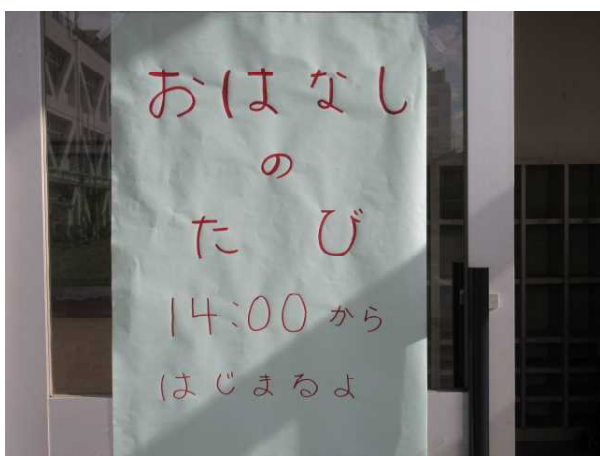 おはなし
の
たび
14:00から
はじまるよ